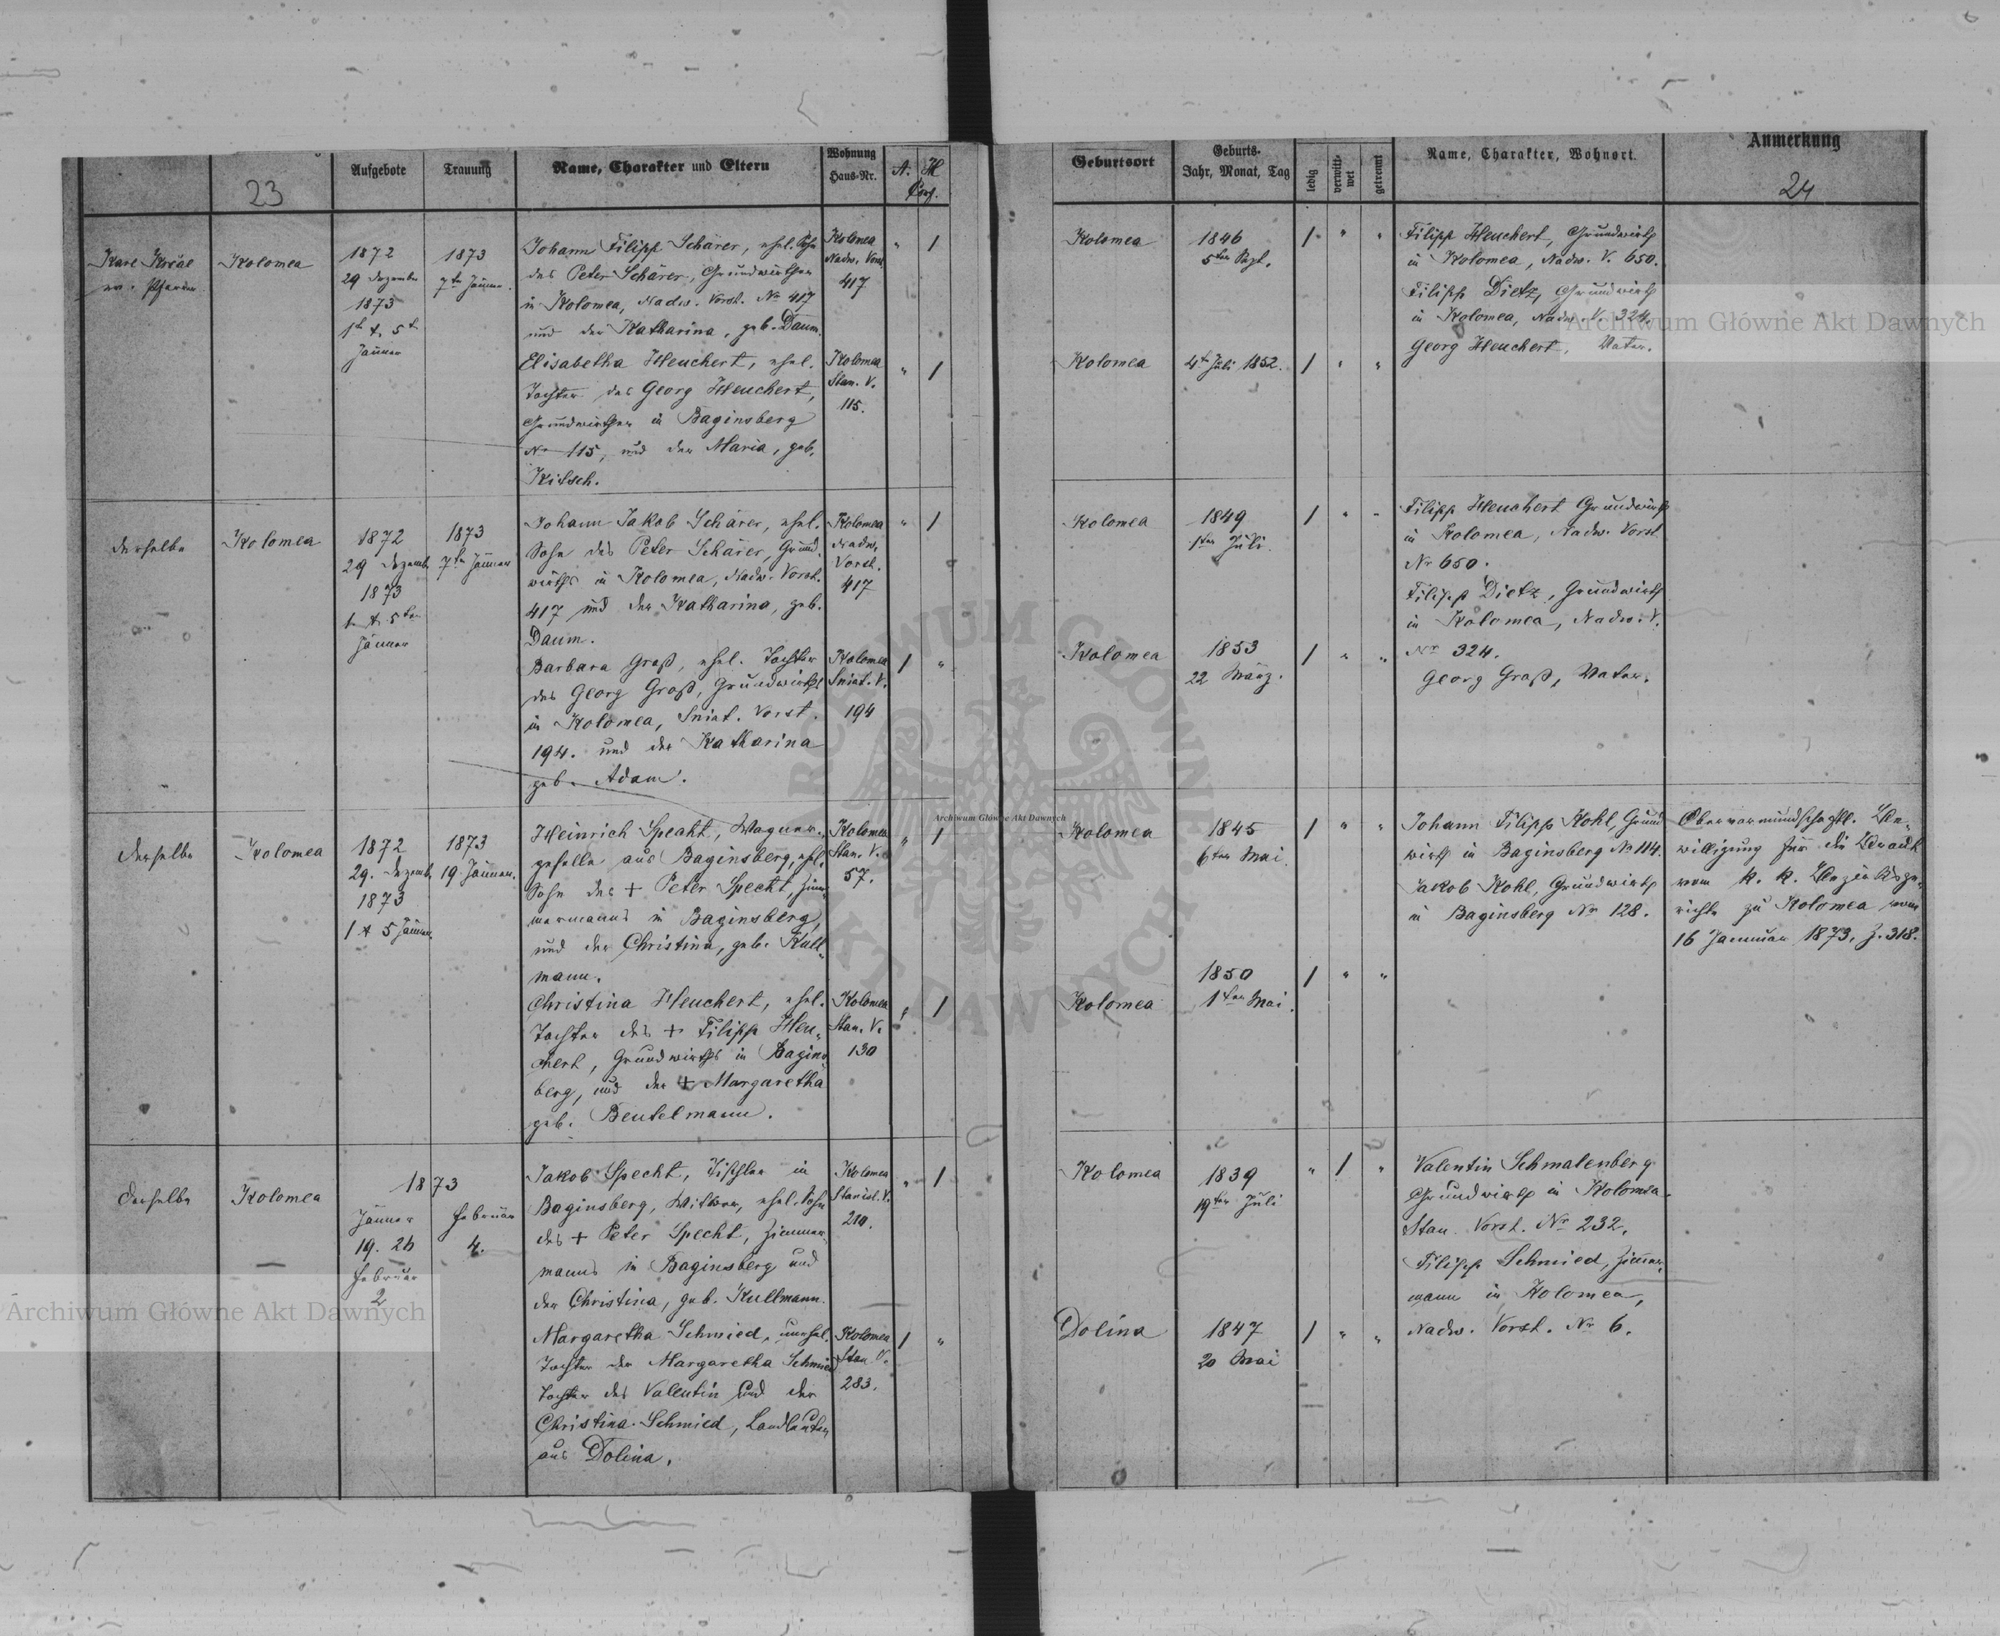 23
Aufgebote
Trauung
Name, Charakter und Eltern
Wohnung
Haus-Nr.
A. H.
Conf.
Karl Král
ev. Pfarrer
Kolomea
1872
29 Dezember
1873
1t & 5t
Jänner
1873
7ten Jänner.
Johann Filipp Schärer, ehel. Sohn
des Peter Schärer, Grundwirthen
in Kolomea, Nadw. Vorst. No 417
und der Katharina, geb. Daum.
Kolomea
Nadw. Vorst.
417
" 1
Elisabetha Heuchert, ehel.
Tochter des Georg Heuchert,
Grundwirthen in Baginsberg
No 115, und der Maria, geb.
Kitsch.
Kolomea
Stan. V.
115.
" 1
derselbe
Kolomea
1872
29 Dezemb.
1873
1. & 5ten
Jänner
1873
7ten Jänner
Johann Jakob Schärer, ehel.
Sohn des Peter Schärer, Grund-
wirths in Kolomea, Nadw. Vorst.
417 und der Katharina, geb.
Daum.
Kolomea
Nadw.
Vorst.
417
" 1
Barbara Groß, ehel. Tochter
des Georg Groß, Grundwirths
in Kolomea, Sniat. Vorst.
194. und der Katharina
geb. Adam.
Kolomea
Sniat. V.
194
1 "
Derselbe
Kolomea
1872
29. Dezemb.
1873
1 & 5 Jänner.
1873
19 Jänner.
Heinrich Specht, Wagner-
geselle aus Baginsberg, ehel.
Sohn des + Peter Specht, Zim-
mermanns in Baginsberg,
und der Christina, geb. Kull-
mann.
Kolomea
Stan. V.
57.
" 1
Christina Heuchert, ehel.
Tochter des + Filipp Heu-
chert, Grundwirths in Bagins-
berg, und der + Margaretha
geb. Beutelmann.
Kolomea
Stan. V.
130
" 1
Derselbe
Kolomea
1873
Jänner
19. 26
Februar
2
Februar
4.
Jakob Specht, Tischler in
Baginsberg, Witwer, ehel. Sohn
des + Peter Specht, Zimmer-
manns in Baginsberg und
der Christina, geb. Kullmann.
Kolomea
Stanisl. V.
210.
" 1
Margaretha Schmied, unehel.
Tochter der Margaretha Schmied
Tochter des Valentin und der
Christina Schmied, Landleuten
aus Dolina.
Kolomea
Stan V.
283.
1 "
Geburtsort
Geburts-
Jahr, Monat, Tag
ledig
verwitt-
wet
getrennt
Name, Charakter, Wohnort.
Anmerkung
24
Kolomea
1846
5ten Sept.
1 " "
Filipp Heuchert, Grundwirth
in Kolomea, Nadw. V. 650.
Filipp Dietz, Grundwirth
in Kolomea, Nadw. V. 324.
Georg Heuchert, Vater.
Kolomea
4ten Juli 1852.
1 " "
Kolomea
1849
1ten Juli.
1 " "
Filipp Heuchert Grundwirth
in Kolomea, Nadw. Vorst.
No 650.
Filipp Dietz, Grundwirth
in Kolomea, Nadw. V.
No 324.
Georg Groß, Vater.
Kolomea
1853
22 März.
1 " "
Kolomea
1845
6ten Mai.
1 " "
Johann Filipp Kohl, Grund-
wirth in Baginsberg No 114.
Jakob Kohl, Grundwirth
in Baginsberg No 128.
Obervormundschaftl. Be-
willigung für die Braut
vom k. k. Bezirksge-
richte zu Kolomea vom
16 Jannuar 1873, Z. 318.
Kolomea
1850
1ten Mai.
1 " "
Kolomea
1839
19ten Juli
" 1 "
Valentin Schmalenberg
Grundwirth in Kolomea
Stan. Vorst. No 232.
Filipp Schmied, Zimmer-
mann in Kolomea,
Nadw. Vorst. No 6.
Dolina
1847
20 Mai
1 " "
Archiwum Główne Akt Dawnych
Archiwum Główne Akt Dawnych
Archiwum Główne Akt Dawnych
ARCHIWUM GŁÓWNE AKT DAWNYCH